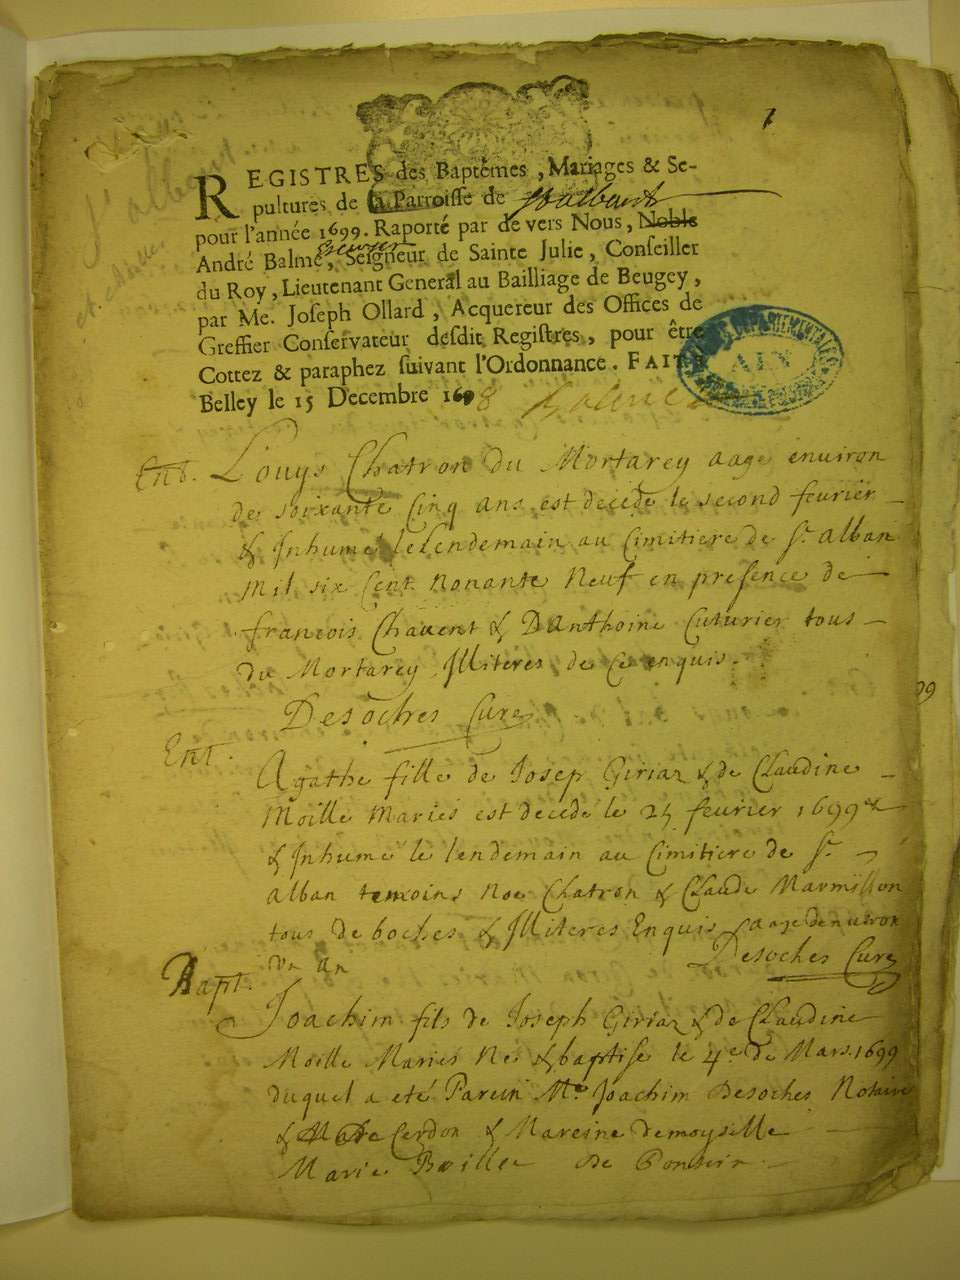 1
REGISTRES des Baptêmes, Mariages & Se-
pultures de la Parroisse de St albant
pour l'année 1699. Raporté par de vers Nous, Noble
André Balme, Escuyer Seigneur de Sainte Julie, Conseiller
du Roy, Lieutenant General au Bailliage de Beugey,
par Me. Joseph Ollard, Acquereur des Offices de
Greffier Conservateur desdit Registres, pour être
Cottez & paraphez suivant l'Ordonnance. FAIT
Belley le 15 Decembre 1698 Balme
DEPARTEMENTALES
AIN
Ent. Louys Chatron du Mortarey aage environ
de soixante Cinq ans, est decede le second feurier
& Inhume le Lendemain au Cimitiere de St. alban
mil six Cent Nonante Neuf en presence de
francois Chauent & Danthoine Cuturier tous
du Mortarey Illiteres de ce enquis.
Desoches Cure
Ent. Agathe fille de Josep Giriaz & de Claudine
Moille Maries est decede le 25 feurier 1699
& Inhume le lendemain au Cimitiere de St.
alban temoins Noe Chatron & Claude Marmillon
tous de boches & Illiteres Enquis aage denuiron
Vn an Desoches Cure
Bapt. Joachim fils de Joseph Giriaz & de Claudine
Moille Maries Ne & baptise le 4e de Mars 1699
duquel a eté Parein Me Joachim Desoches Notaire
& de Cerdon & Mareine demoyselle
Marie Boille de Poncin
99